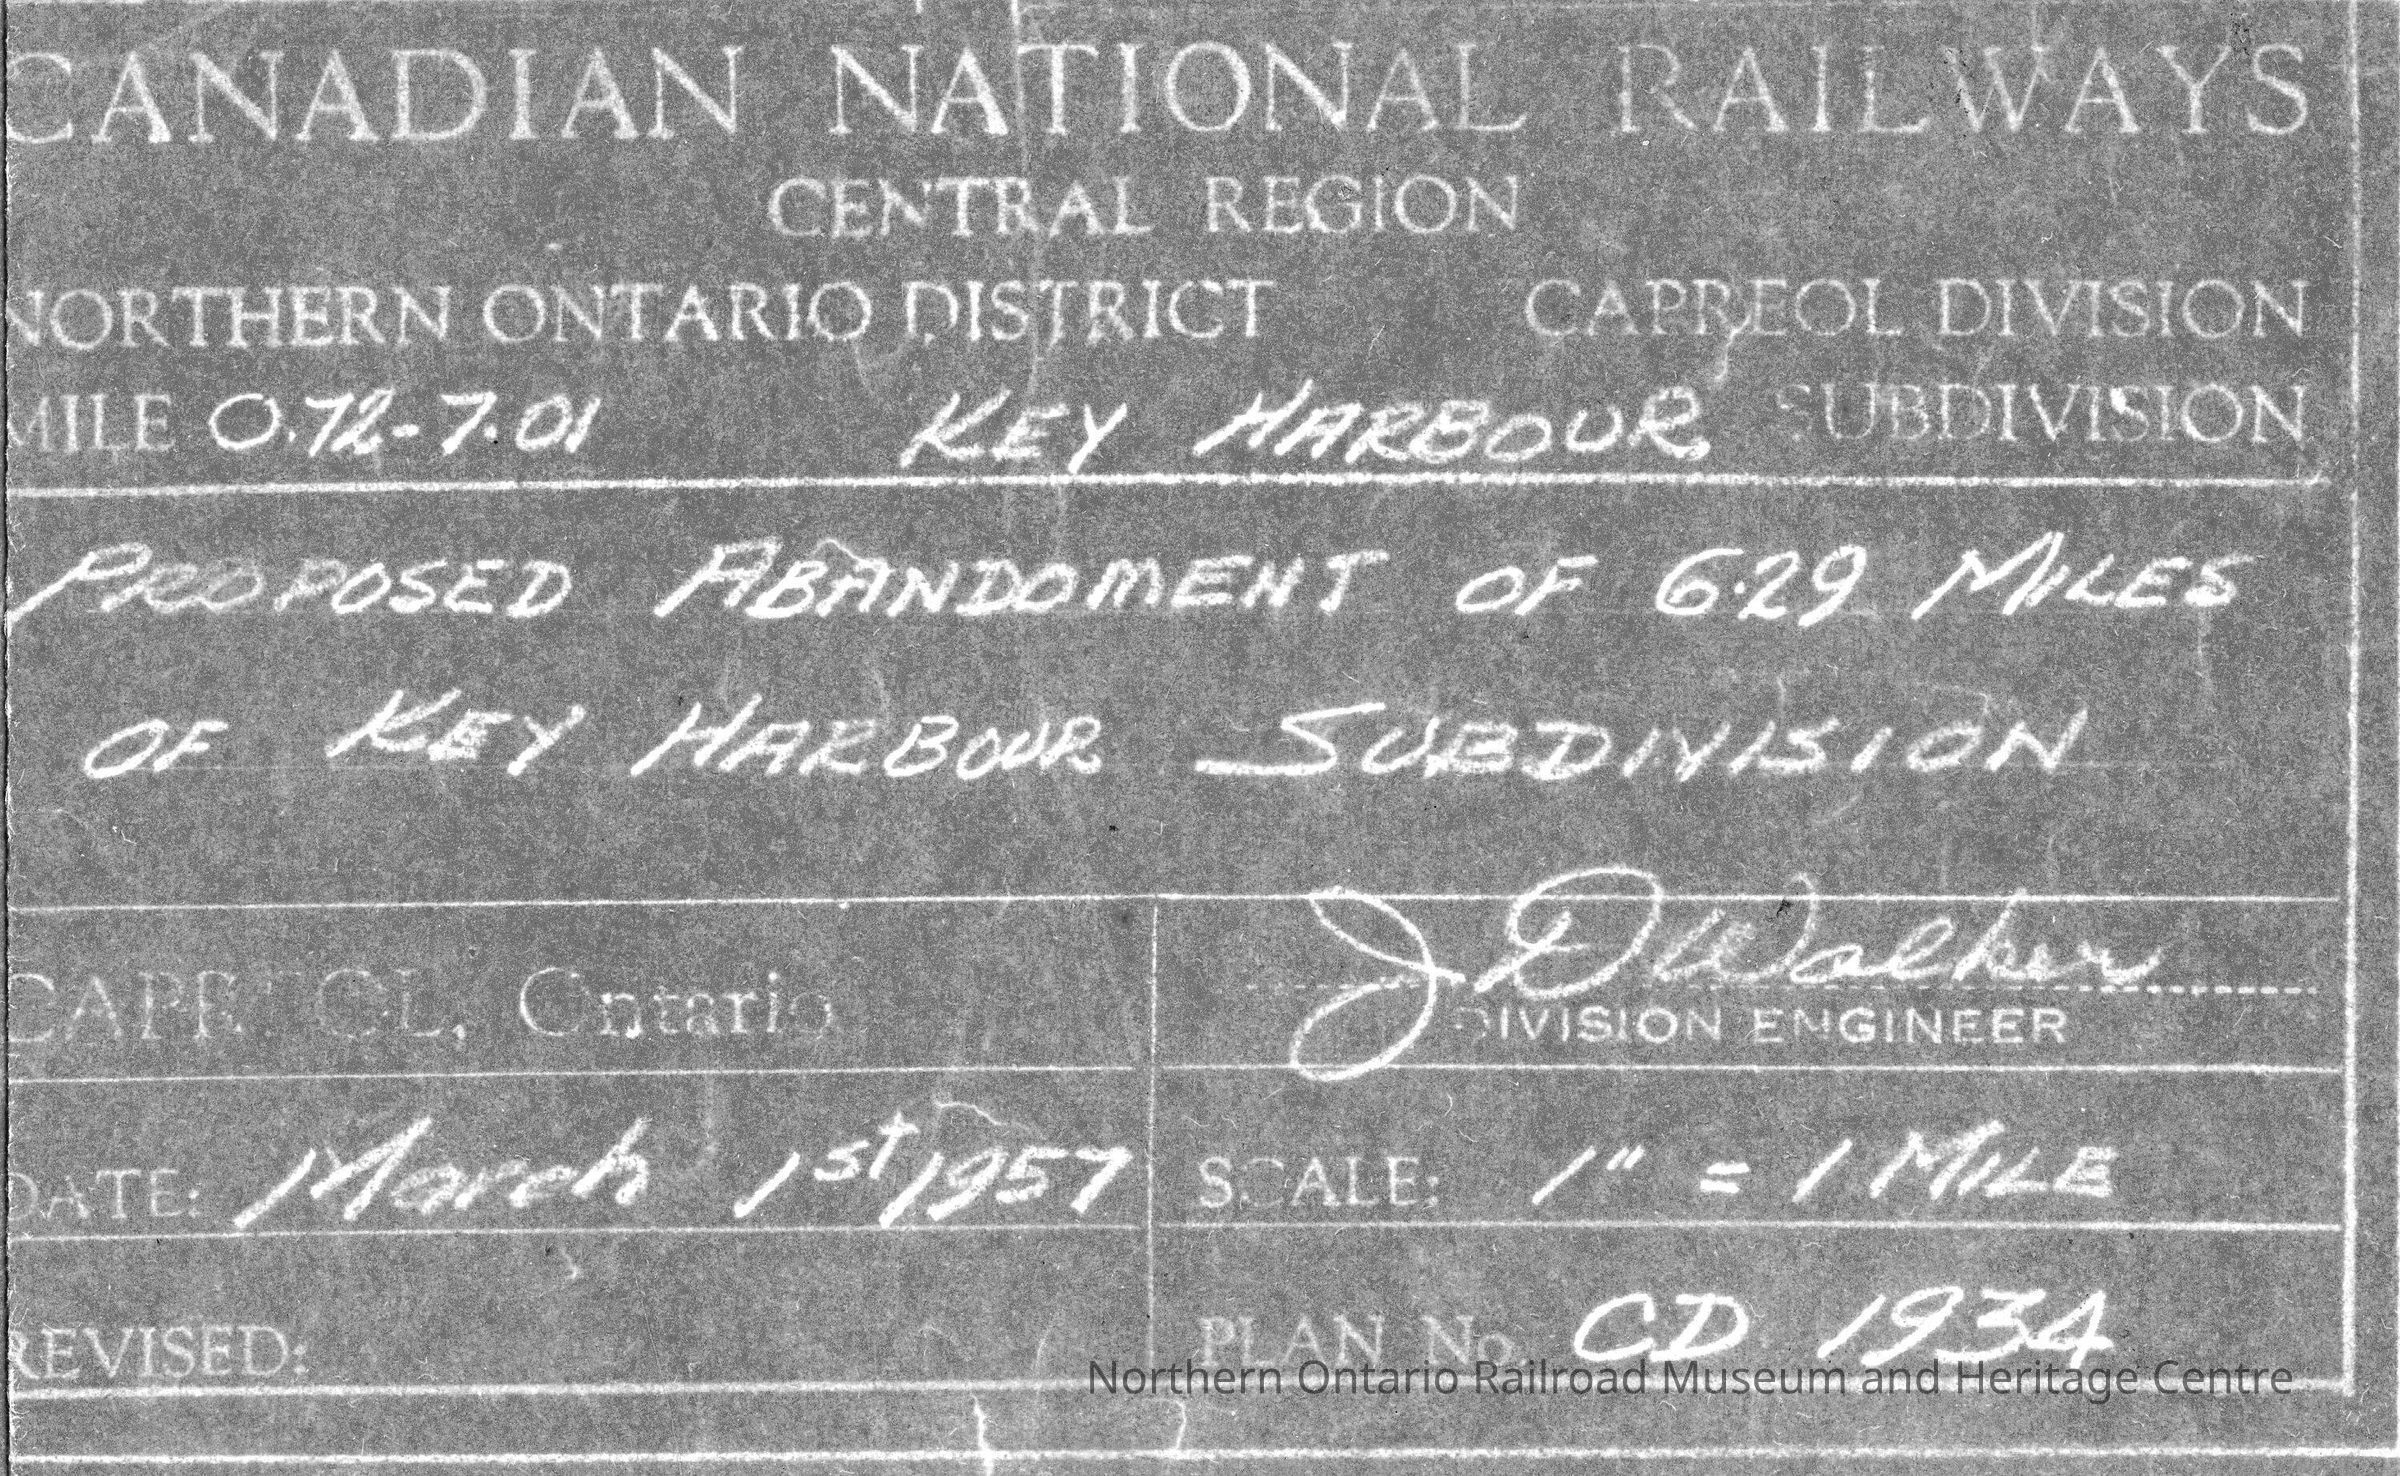 CANADIAN NATIONAL RAILWAYS
CENTRAL REGION
NORTHERN ONTARIO DISTRICT CAPREOL DIVISION
MILE 0.72-7.01 KEY HARBOUR SUBDIVISION
PROPOSED ABANDOMENT OF 6.29 MILES
OF KEY HARBOUR SUBDIVISION
CAPREOL, Ontario
J D Walker
DIVISION ENGINEER
DATE: March 1st 1957
SCALE: 1" = 1 MILE
REVISED:
PLAN No. CD 1934
Northern Ontario Railroad Museum and Heritage Centre